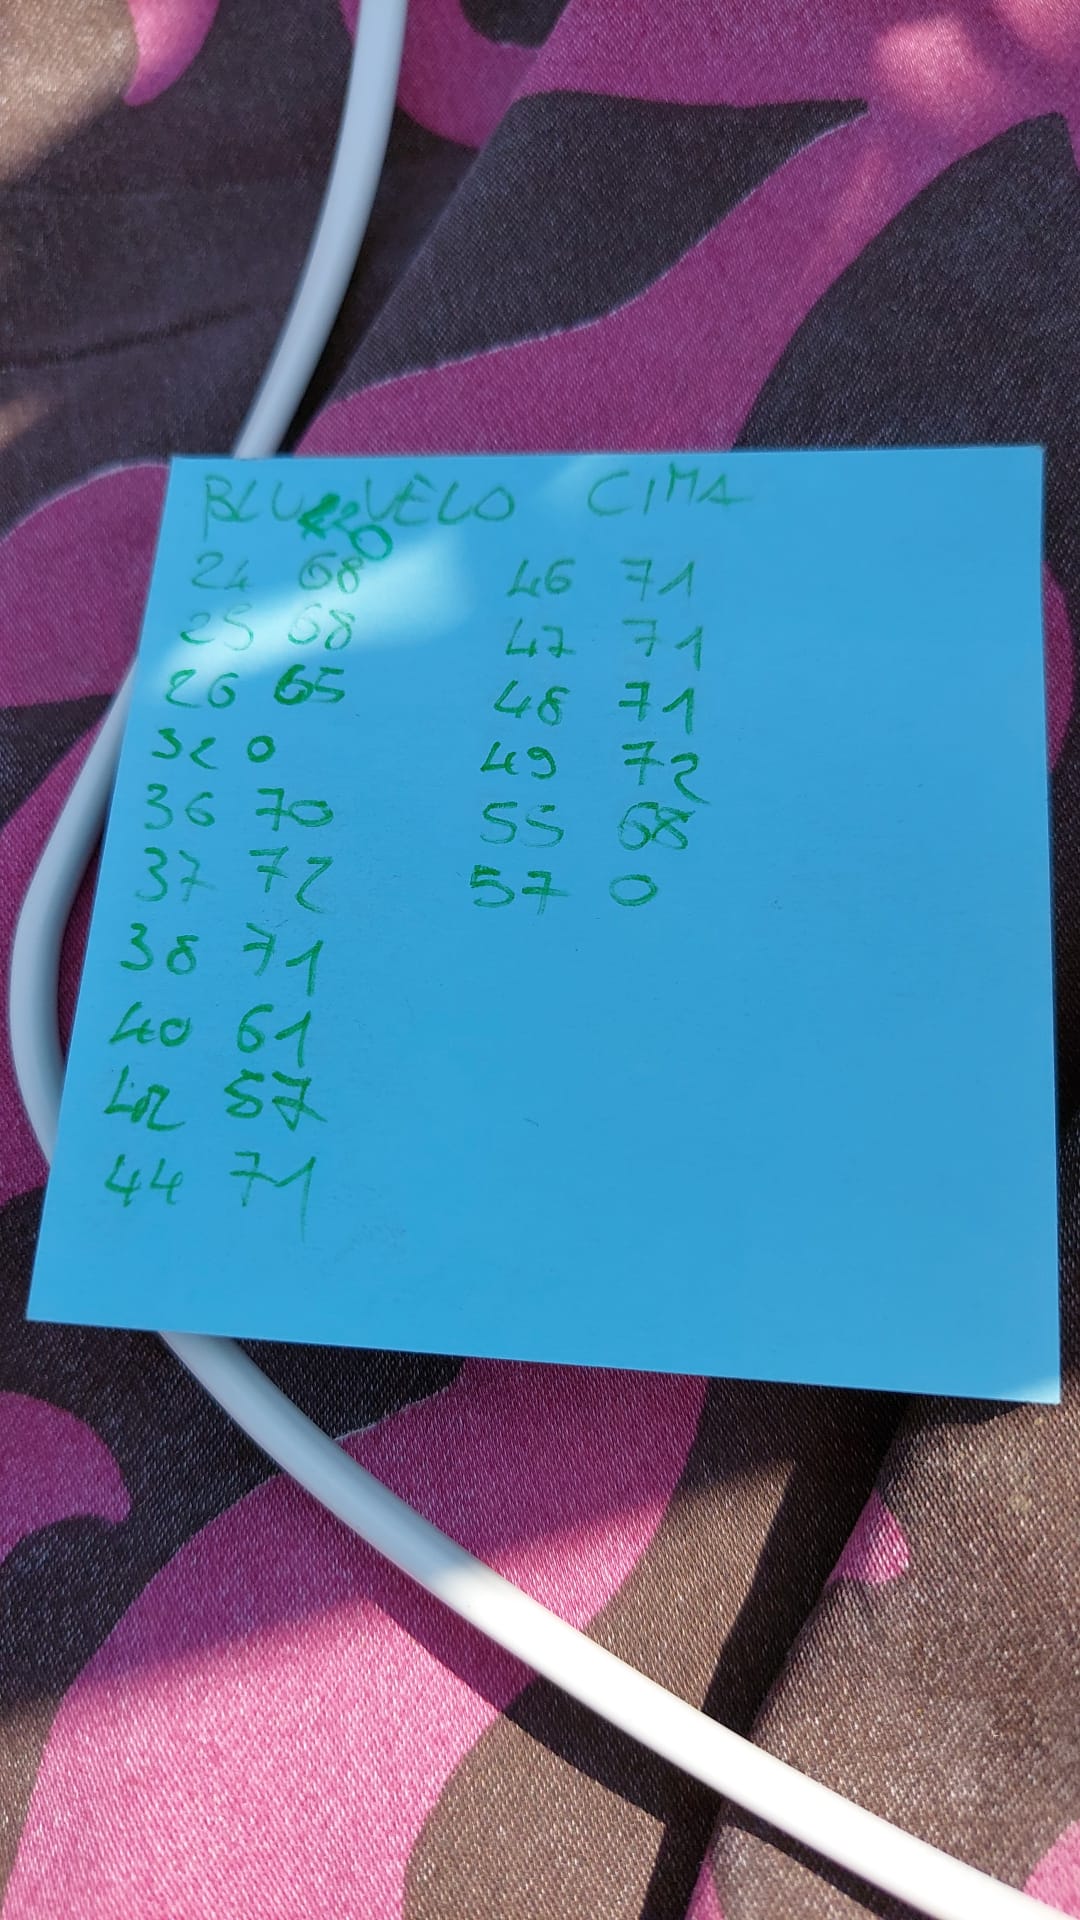 BLU VELO CIMA
24 68
25 68
26 65
32 0
36 70
37 72
38 71
40 61
42 57
44 71
46 71
47 71
48 71
49 72
55 68
57 0